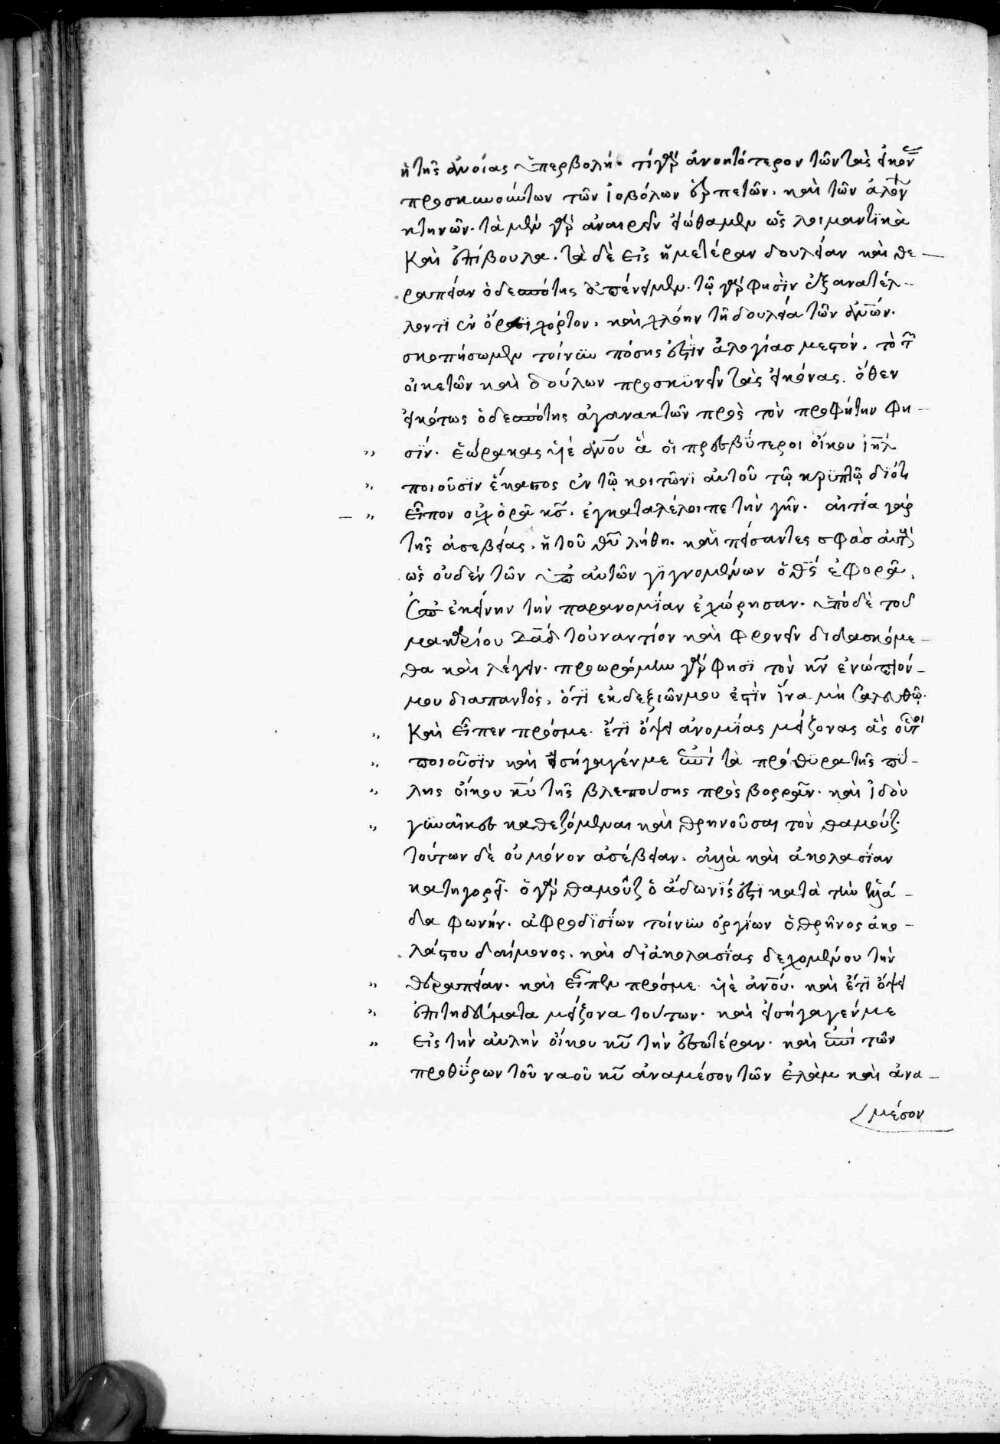 ἡ τῆς ἀνοίας ὑπερβολή. τί γὰρ ἀνοητότερον τῶν τὰς εἰκόν
προσκυνούντων τῶν ἰοβόλων ἑρπετῶν. καὶ τῶν ἀλόγ
κτηνῶν. τὰ μὲν γὰρ ἀναιρεῖν εἰώθαμεν ὡς λοιμαντικὰ
Καὶ ἐπίβουλα. τὰ δὲ εἰς ἡμετέραν δουλείαν καὶ θε-
ραπείαν ὁ δεσπότης ἀπένειμεν. τῷ γὰρ φησὶν ἐξανατέλ-
λοντι ἐν ὄρεσι χόρτον, καὶ χλόην τῇ δουλεία τῶν ἀν̅ων.
σκοπήσωμεν τοίνυν πόσης ἐστὶν ἀλογίας μεστόν. τὸ τ
οἰκετῶν καὶ δούλων προσκυνεῖν τὰς εἰκόνας. ὅθεν
εἰκότως ὁ δεσπότης ἀγανακτῶν πρὸς τὸν προφήτην φη-
" σίν. ἑώρακας υἱὲ ἀν̅ου ἃ οἱ πρεσβύτεροι οἴκου ιη̅λ
" ποιοῦσιν ἕκαστος ἐν τῷ κοιτῶνι αὐτοῦ τῷ κρυπτῷ διότι
— " εἶπον οὐχ ὁρᾷ κ̅ς. ἐγκαταλέλοιπε τὴν γῆν. αἰτία γὰρ
τῆς ἀσεβείας, ἡ τοῦ θ̅υ λήθη. καὶ πείσαντες σφᾶς αὐτ
ὡς οὐδὲν τῶν ὑπ αὐτῶν γιγνομένων ὁ θ̅ς ἐφορᾶ,
ἐπ ἐκείνην τὴν παρανομίαν ἐχώρησαν. ὑπὸ δὲ τοῦ
μακαρίου δα̅δ τοὐναντίον καὶ φρονεῖν διδασκόμε-
θα καὶ λέγειν. προωρώμην γὰρ φησὶ τὸν κ̅ν ἐνώπιόν-
μου διαπαντός, ὅτι ἐκ δεξιῶν μου ἐστὶν ἵνα μὴ σαλευθῶ.
" Καὶ εἶπεν πρός με. ἔτι ὄψει ἀνομίας μείζονας ἃς οὗτοι
" ποιοῦσιν καὶ εἰσήγαγέν με ἐπὶ τὰ πρόθυρα τῆς πύ-
" λης οἴκου κ̅υ τῆς βλεπούσης πρὸς βορρᾶν. καὶ ἰδοὺ
" γυναῖκες καθεζόμεναι καὶ θρηνοῦσαι τὸν θαμούζ.
τούτων δὲ οὐ μόνον ἀσέβειαν. ἀλλὰ καὶ ἀκολασίαν
κατηγορεῖ. ὁ γὰρ θαμοὺζ ὁ ἄδωνίς ἐστι κατὰ τὴν ἑλλά-
δα φωνήν. ἀφροδισίων τοίνυν ὀργίων ὁ θρῆνος ἀκο-
λάστου δαίμονος. καὶ δι ἀκολασίας δεχομένου τὴν
" θεραπείαν. καὶ εἶπεν πρός με. υἱὲ ἀν̅ου. καὶ ἔτι ὄψει
" ἐπιτηδεύματα μείζονα τούτων. καὶ εἰσήγαγέν με
" εἰς τὴν αὐλὴν οἴκου κ̅υ τὴν ἐσωτέραν. καὶ ἐπὶ τῶν
προθύρων τοῦ ναοῦ κ̅υ ἀναμέσον τῶν ἐλὰμ καὶ ἀνα-
μέσον